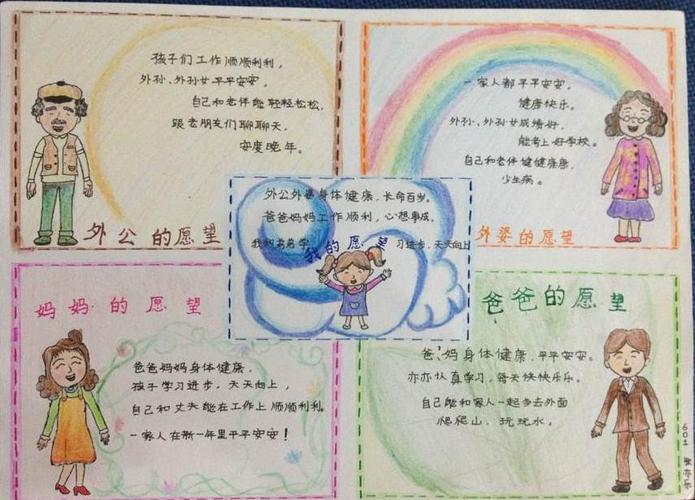 孩子们工作顺顺利利，
外孙、外孙女平平安安，
自己和老伴能轻轻松松，
跟老朋友们聊聊天，
安度晚年。
外公的愿望
一家人都平平安安。
健康快乐。
外孙、外孙女成绩好，
能考上好学校。
自己和老伴健健康康，
少生病。
外婆的愿望
外公外婆身体健康，长命百岁。
爸爸妈妈工作顺利，心想事成。
我和弟弟学习进步，天天向上
我的愿望
妈妈的愿望
爸爸妈妈身体健康，
孩子学习进步，天天向上，
自己和丈夫能在工作上顺顺利利。
一家人在新一年里平平安安！
爸爸的愿望
爸、妈身体健康，平平安安。
亦亦认真学习，每天快快乐乐。
自己能和家人一起多去外面
爬爬山，玩玩水。
601